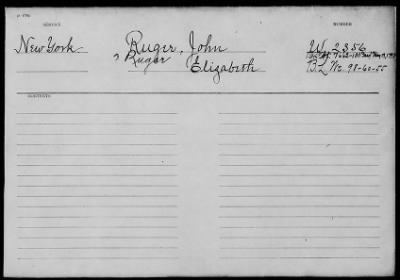 SERVICE
NUMBER
New York
Ruger, John
W. 2356
Ruger Elizabeth
B.L.
98-60-55
CONTENTS: